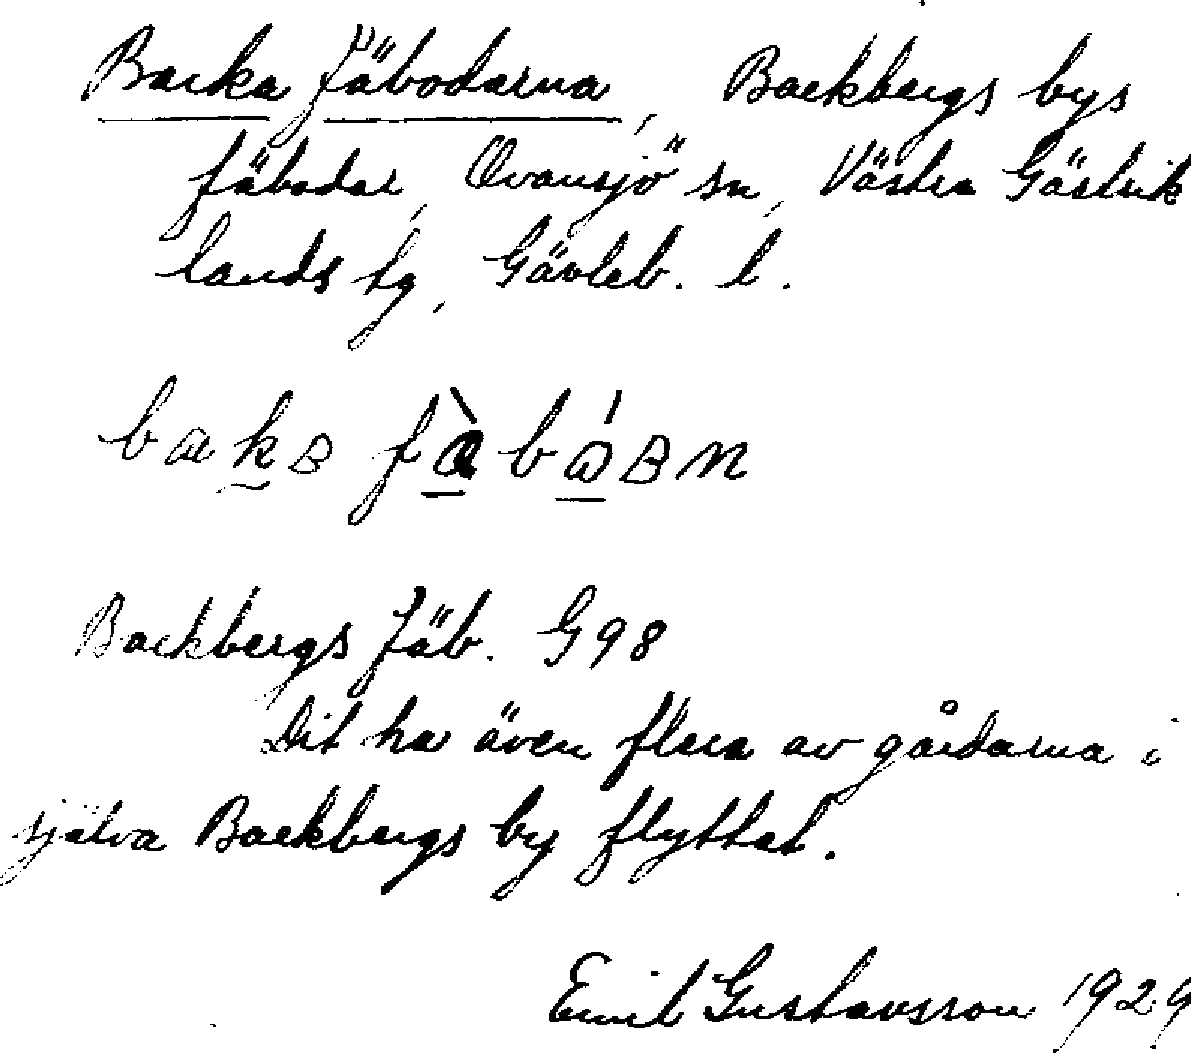 Backa fäbodarna, Backbergs bys
fäbodar, Ovansjö sn, Västra Gästrik
lands tg, Gävleb. l.
Backbergs Fäb. G98
Dit ha även flera av gårdarna i
själva Backbergs by flyttat.
Emil Gustavsson 1929